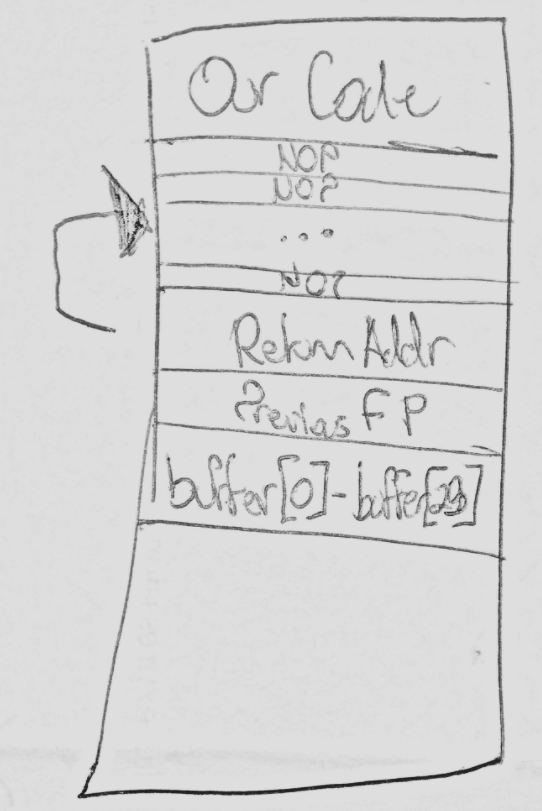 Our Code
NOP
NOP
...
NOP
Return Addr
Previous FP
buffer[0]-buffer[23]